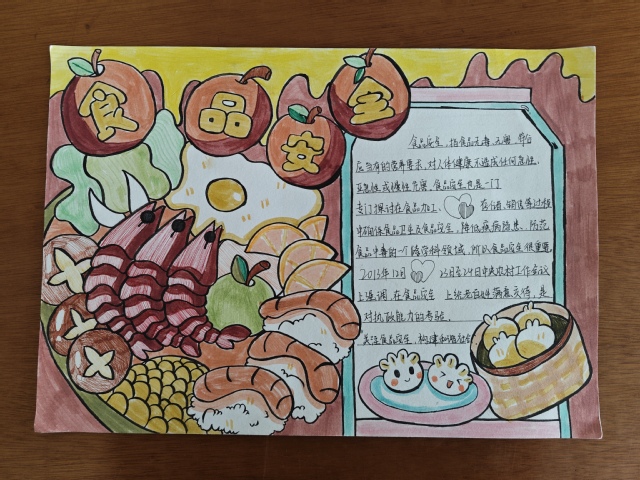 食品安全
食品安全，指食品无毒、无害，符合
应当有的营养要求，对人体健康不造成任何急性、
亚急性或慢性危害。食品安全也是一门
专门探讨在食品加工、存储、销售等过程
中确保食品卫生及食品安全，降低疾病隐患，防范
食品中毒的一个跨学科领域，所以食品安全很重要。
2013年12月23日至24日中央农村工作会议
上强调，在食品安全上给老百姓满意交待，是
对执政能力的考验。
关注食品安全，构建和谐社会